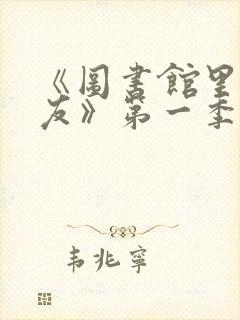 《圖書館里
友》第一季
韦兆寧